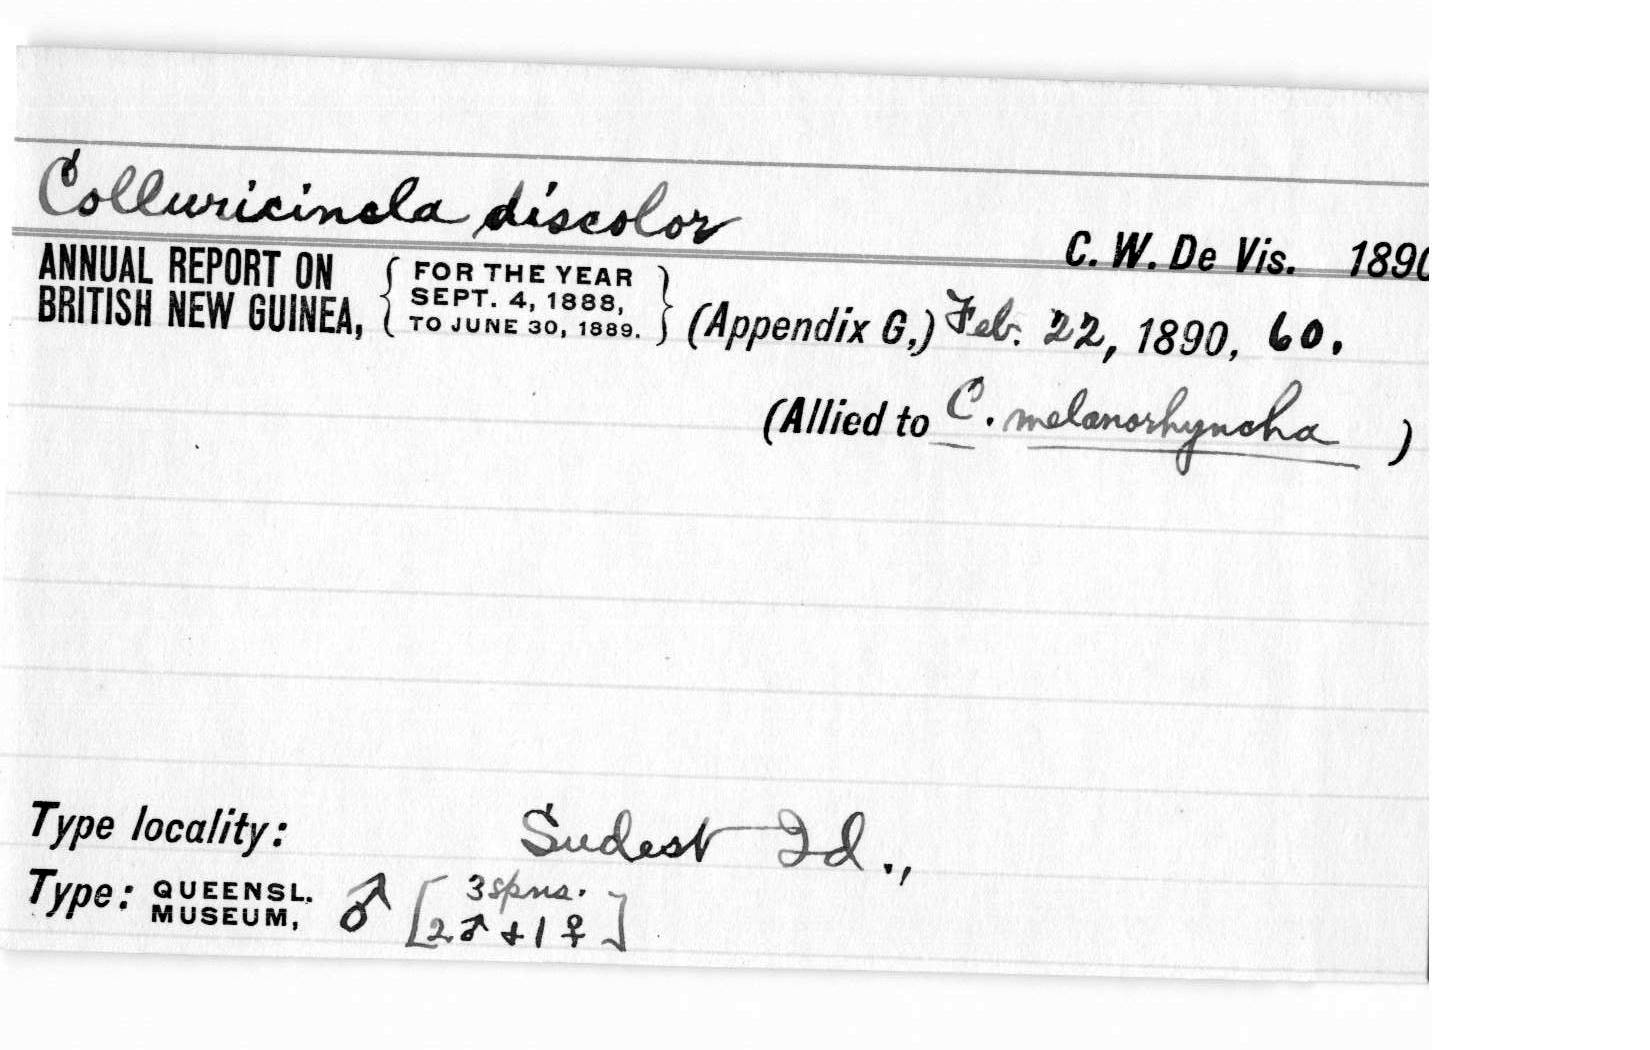 Colluricincla discolor
C. W. De Vis. 1890
ANNUAL REPORT ON BRITISH NEW GUINEA, { FOR THE YEAR SEPT. 4, 1888, TO JUNE 30, 1889. } (Appendix G,) Feb. 22, 1890, 60.
(Allied to C. melanorhyncha )
Type locality: Sudest Id.,
Type: QUEENSL. MUSEUM, ♂ [3 spns. 2 ♂ + 1 ♀]